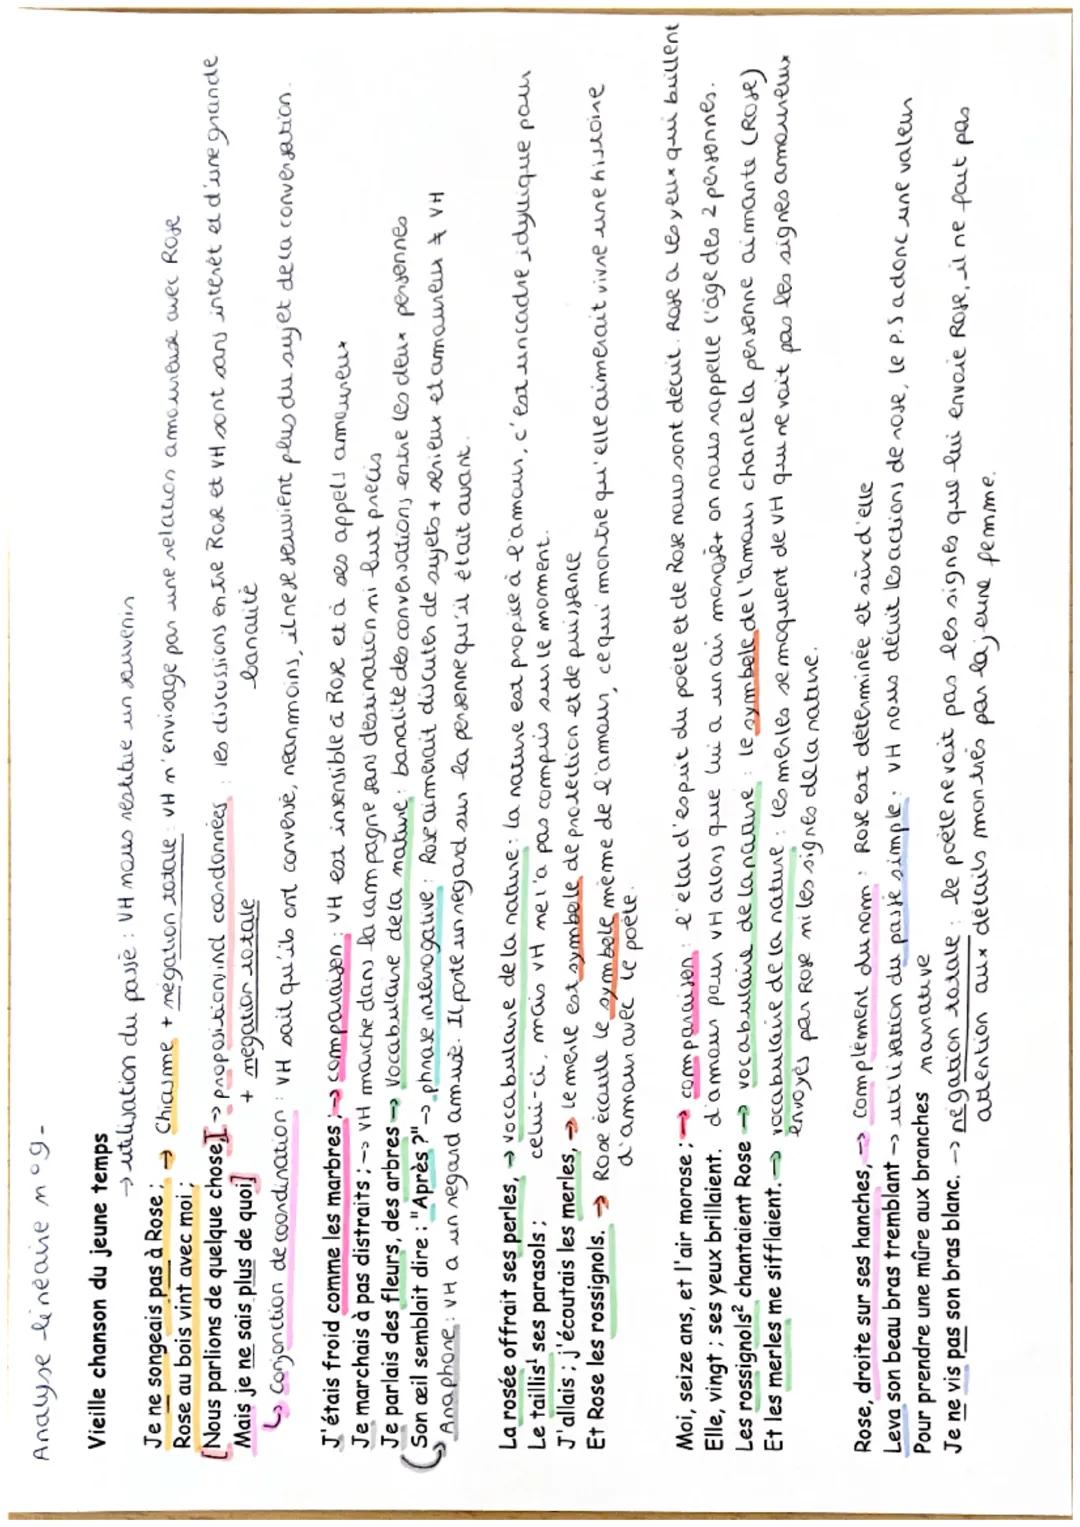 Analyse linéaire n°9-
Vieille chanson du jeune temps
→ utilisation du passé : VH nous restitue un souvenir
Je ne songeais pas à Rose ; → Chiasme + négation totale : VH n'envisage pas une relation amoureuse avec Rose
Rose au bois vint avec moi ;
[Nous parlions de quelque chose,] → proposition ind coordonnées : les discussions entre Rose et VH sont sans intérêt et d'une grande
Mais je ne sais plus de quoi.] + négation totale banalité
↳ Conjonction de coordination : VH sait qu'ils ont conversé, néanmoins, il ne se souvient plus du sujet de la conversation.
J'étais froid comme les marbres ; → comparaison : VH est insensible à Rose et à ses appels amoureux
Je marchais à pas distraits ; → VH marche dans la campagne sans destination ni but précis
Je parlais des fleurs, des arbres → Vocabulaire de la nature : banalité des conversations entre les deux personnes
Son œil semblait dire : "Après ?" → phrase interrogative : Rose aimerait discuter de sujets + sérieux et amoureux ≠ VH
↳ Anaphore : VH a un regard amusé. Il porte un regard sur la personne qu'il était avant.
La rosée offrait ses perles, → vocabulaire de la nature : la nature est propice à l'amour, c'est un cadre idyllique pour
Le taillis¹ ses parasols ; celui-ci, mais VH ne l'a pas compris sur le moment.
J'allais ; j'écoutais les merles, → le merle est symbole de protection et de puissance
Et Rose les rossignols. → Rose écoute le symbole même de l'amour, ce qui montre qu'elle aimerait vivre une histoire
d'amour avec le poète.
Moi, seize ans, et l'air morose ; → comparaison : l'état d'esprit du poète et de Rose nous sont décrit. Rose a les yeux qui brillent
Elle, vingt ; ses yeux brillaient. d'amour pour VH alors que lui a un air morose + on nous rappelle l'âge des 2 personnes.
Les rossignols² chantaient Rose → vocabulaire de la nature : le symbole de l'amour chante la personne aimante (Rose)
Et les merles me sifflaient. → vocabulaire de la nature : les merles se moquent de VH qui ne voit pas les signes amoureux
envoyés par Rose ni les signes de la nature.
Rose, droite sur ses hanches, → Complément du nom : Rose est déterminée et sûre d'elle
Leva son beau bras tremblant → utilisation du passé simple : VH nous décrit les actions de rose, le P.S a donc une valeur
Pour prendre une mûre aux branches narrative
Je ne vis pas son bras blanc. → négation totale : le poète ne voit pas les signes que lui envoie Rose, il ne fait pas
attention aux détails montrés par la jeune femme.